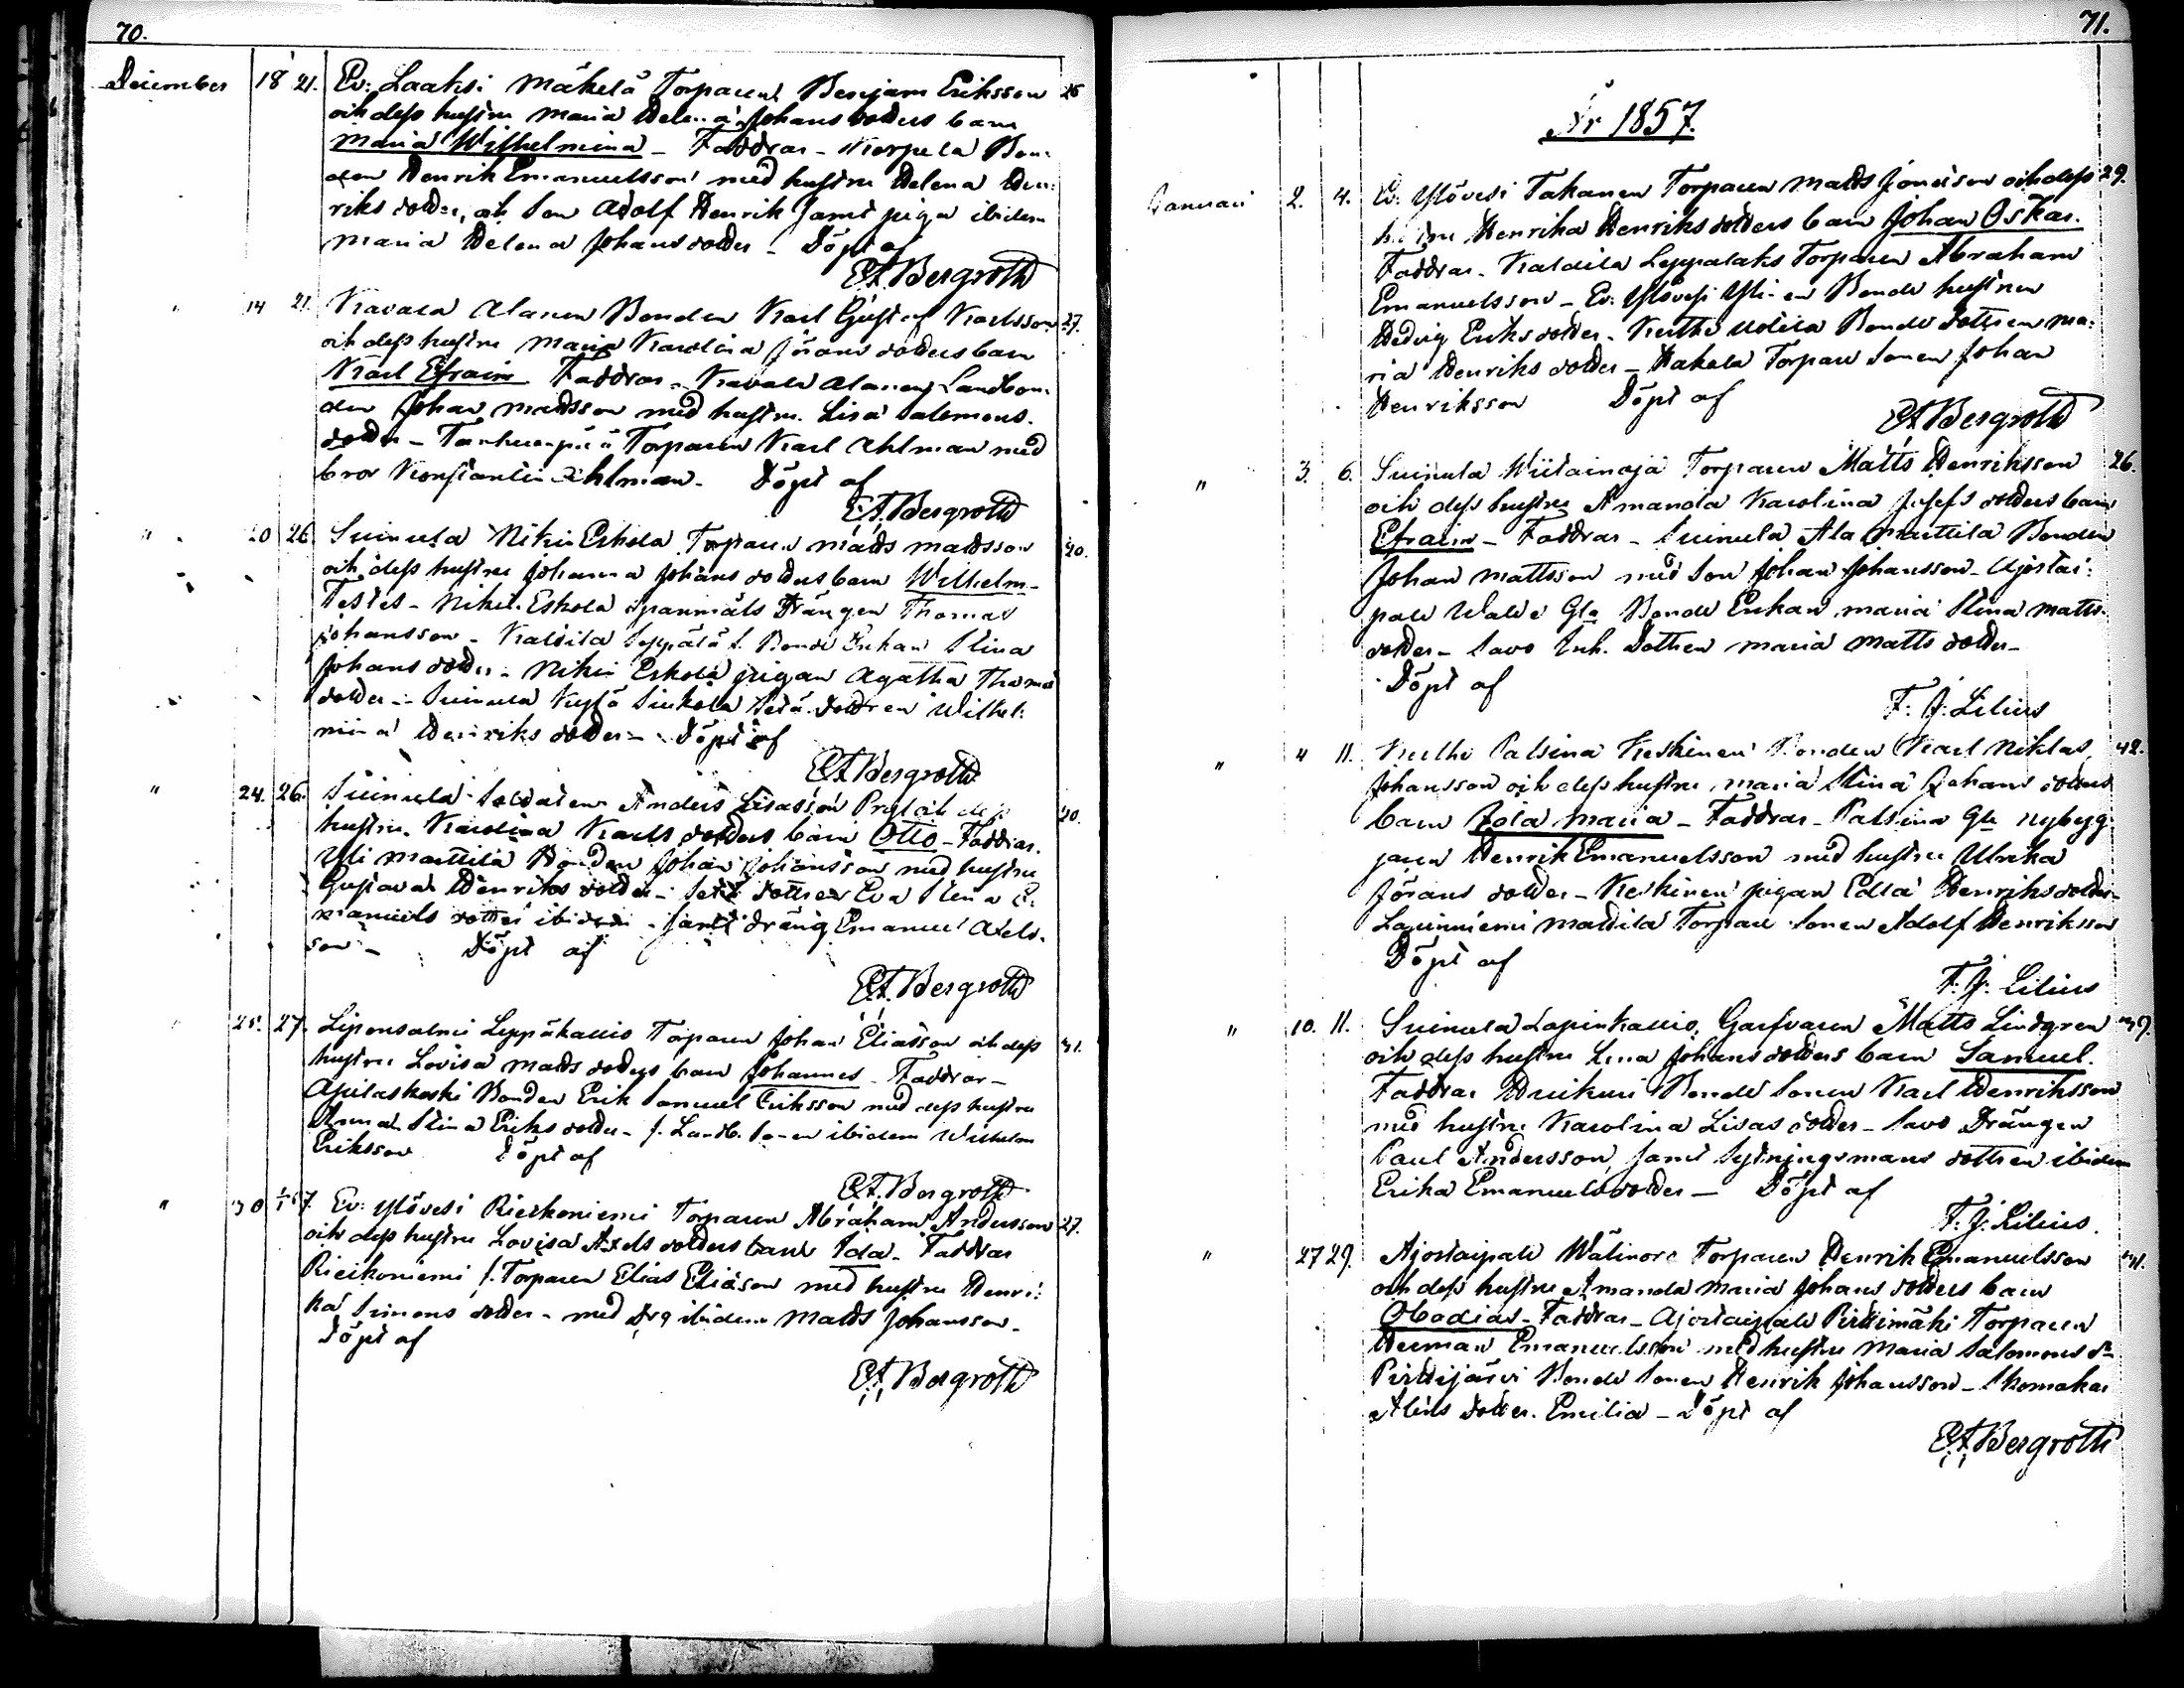 70.
December 18 21. Ev: Laaksi Mäkelä Torparen Benjam Eriksson 26
och dess hustru Maria Helena Johans dotters barn
Maria Wilhelmina - Faddrar - Korpela Bon-
den Henrik Emanuelsson med hustru Helena Hen-
riks dotter, och Son Adolf Henrik samt pigan ibidem
Maria Helena Johans dotter - Döpt af
EA Bergroth
" 14 21. Kavala Alanen Bonden Karl Gustaf Karlsson 27.
och dess hustru Maria Karolina Jörans dotters barn
Karl Efraim Faddrar - Kavala Alanen Landbon-
den Johan Mattsson med hustru Lisa Salomons
dotter - Torparen Karl Ahlman med
bror Konstantin Ahlman. Döpt af
EA Bergroth
" 20 26 Suinula Nikin Eskola Torparen Matts Mattsson 40.
och dess hustru Johanna Johans dotters barn Wilhelm -
Testes - Nikin Eskola spannmåls Drängen Thomas
Johansson - Kaldila Seppälä f. Bonde Enkan Stina
Johans dotter - Nikin Eskola pigan Agatha Thomas
dotter - Suinula dottren Wilhel-
mina Henriks dotter - Döpt af
EA Bergroth
" 24. 26. Suinula Soldaten Anders Isaksson och dess 30.
hustru Karolina Karls dotters barn Otto - Faddrar.
Yli Marttila Bonden Johan Johansson med hustru
Gustava Henriks dotter - dottren Eva Stina E-
manuels dotter ibidem - samt dräng Emanuel Axels-
son - Döpt af
EA Bergroth
" 25. 27. Liponselmi Leppäkallio Torparen Johan Eliasson och dess 31.
hustru Lovisa Matts dotters barn Johannes - Faddrar -
Apilaskoski Bonden Erik Samuel Eriksson med dess hustru
Anna Stina Eriks dotter - f. Landb. Sonen ibidem Wilhelm
Eriksson Döpt af
EA Bergroth
" 30 1/1 57. Ev: Ylövesi Rieskoniemi Torparen Abraham Andersson 27.
och dess hustru Lovisa Axels dotters barn Ida - Faddrar
Rieskoniemi f. Torparen Elias Eliasson med hustru Henri-
ka Simons dotter - med Drg ibidem Matts Johansson -
Döpt af
EA Bergroth
71.
År 1857.
Januari 2. 4. Ev: Ylövesi Takanen Torparen Matts Jonasson och dess 29.
hustru Henrika Henriks dotters barn Johan Oskar.
Faddrar. Kaldila Leppälaks Torparen Abraham
Emanuelsson - Ev: Ylövesi Bonde hustrun
Hedvig Eriks dotter - Keuthi Bonde dottren Ma-
ria Henriks dotter - Hakala Torpare Sonen Johan
Henriksson Döpt af
EA Bergroth
" 3. 6. Suinula Wiitainoja Torparen Matts Henriksson 26.
och dess hustru Amanda Karolina Josefs dotters barn
Efraim - Faddrar - Suinula Ala Marttila Bonden
Johan Mattsson med Son Johan Johansson - Ajostai-
pale Gla Bonde Enkan Maria Stina Matts
dotter - Savo Inh. Dottren Maria Matts dotter -
Döpt af
F. J. Lilius
" 4 11. Keulhi Palsina Keskinen Bonden Karl Niklas 42.
Johansson och dess hustru Maria Stina Johans dotters
barn Ida Maria - Faddrar - Palsina Gla nybyg-
jaren Henrik Emanuelsson med hustru Ulrika
Jörans dotter - Keskinen pigan Edla Henriks dotter
Lapinniemi Torpare Sonen Adolf Henriksson
Döpt af
F. J. Lilius
" 10. 11. Suinula Lapinkallio, Garfvaren Matts Lindgren 39.
och dess hustru Lena Johans dotters barn Samuel.
Faddrar Bonde Sonen Karl Henriksson
med hustru Karolina Lisas dotter - Savo Drängen
Paul Andersson, samt Sytningsmans dottren ibidem
Erika Emanuels dotter - Döpt af
F. J. Lilius.
" 27 29. Ajostaipale Wälinoro Torparen Henrik Emanuelsson 41.
och dess hustru Amanda Maria Johans dotters barn
Obadias - Faddrar - Ajostaipale Pirttimäki Torparen
Herman Emanuelsson med hustru Maria Salomons dr
Pirttijärvi Bonde Sonen Henrik Johansson - Skomakar
dotter Emilia - Döpt af
EA Bergroth